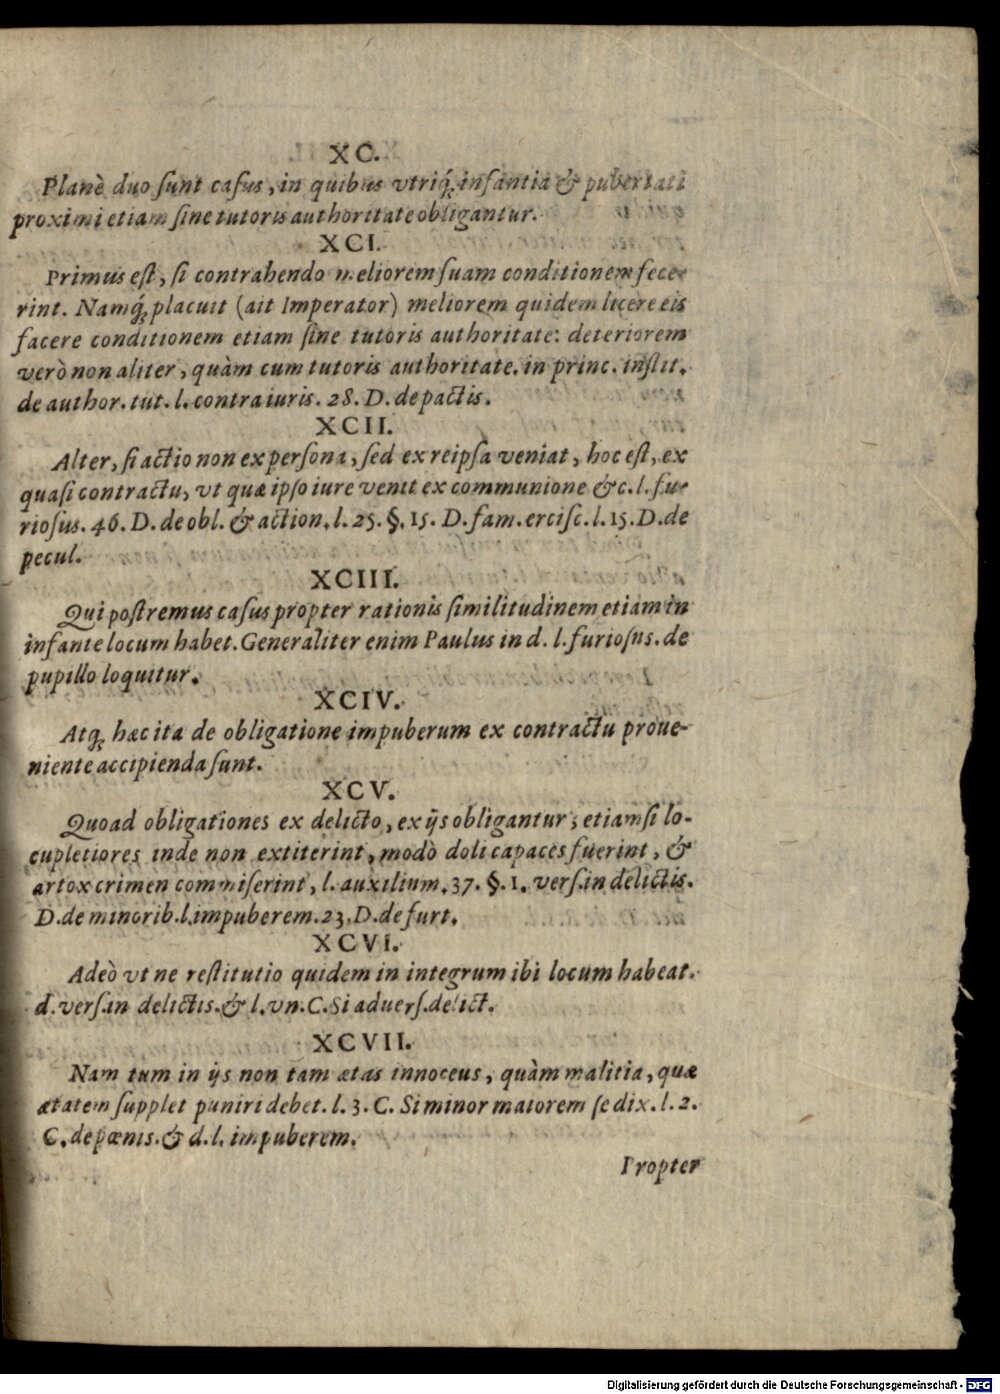 XC.
Planè duo ſunt caſus, in quibus vtriq́; infantiæ & pubertati
proximi etiam ſine tutoris authoritate obligantur.
XCI.
Primus eſt, ſi contrahendo meliorem ſuam conditionem fece-
rint. Namq́; placuit (ait Imperator) meliorem quidem licere eis
facere conditionem etiam ſine tutoris authoritate: deteriorem
verò non aliter, quàm cum tutoris authoritate. in princ. inſtit.
de author. tut. l. contra iuris. 28. D. de pactis.
XCII.
Alter, ſi actio non ex perſona, ſed ex reipſa veniat, hoc eſt, ex
quaſi contractu, vt quæ ipſo iure venit ex communione &c. l. fu-
rioſus. 46. D. de obl. & action. l. 25. §. 15. D. fam. erciſc. l. 15. D. de
pecul.
XCIII.
Qui poſtremus caſus propter rationis ſimilitudinem etiam in
infante locum habet. Generaliter enim Paulus in d. l. furioſus. de
pupillo loquitur.
XCIV.
Atq; hæc ita de obligatione impuberum ex contractu proue-
niente accipienda ſunt.
XCV.
Quoad obligationes ex delicto, ex ijs obligantur; etiamſi lo-
cupletiores inde non extiterint, modò doli capaces fuerint, &
atrox crimen commiſerint, l. auxilium. 37. §. 1. verſ. in delictis.
D. de minorib. l. impuberem. 23. D. de furt.
XCVI.
Adeò vt ne reſtitutio quidem in integrum ibi locum habeat.
d. verſ. in delictis. & l. vn. C. Si aduerſ. delict.
XCVII.
Nam tum in ijs non tam ætas innoceus, quàm malitia, quæ
ætatem ſupplet puniri debet. l. 3. C. Si minor maiorem ſe dix. l. 2.
C. de pœnis. & d. l. impuberem.
Propter
Digitalisierung gefördert durch die Deutsche Forschungsgemeinschaft - DFG